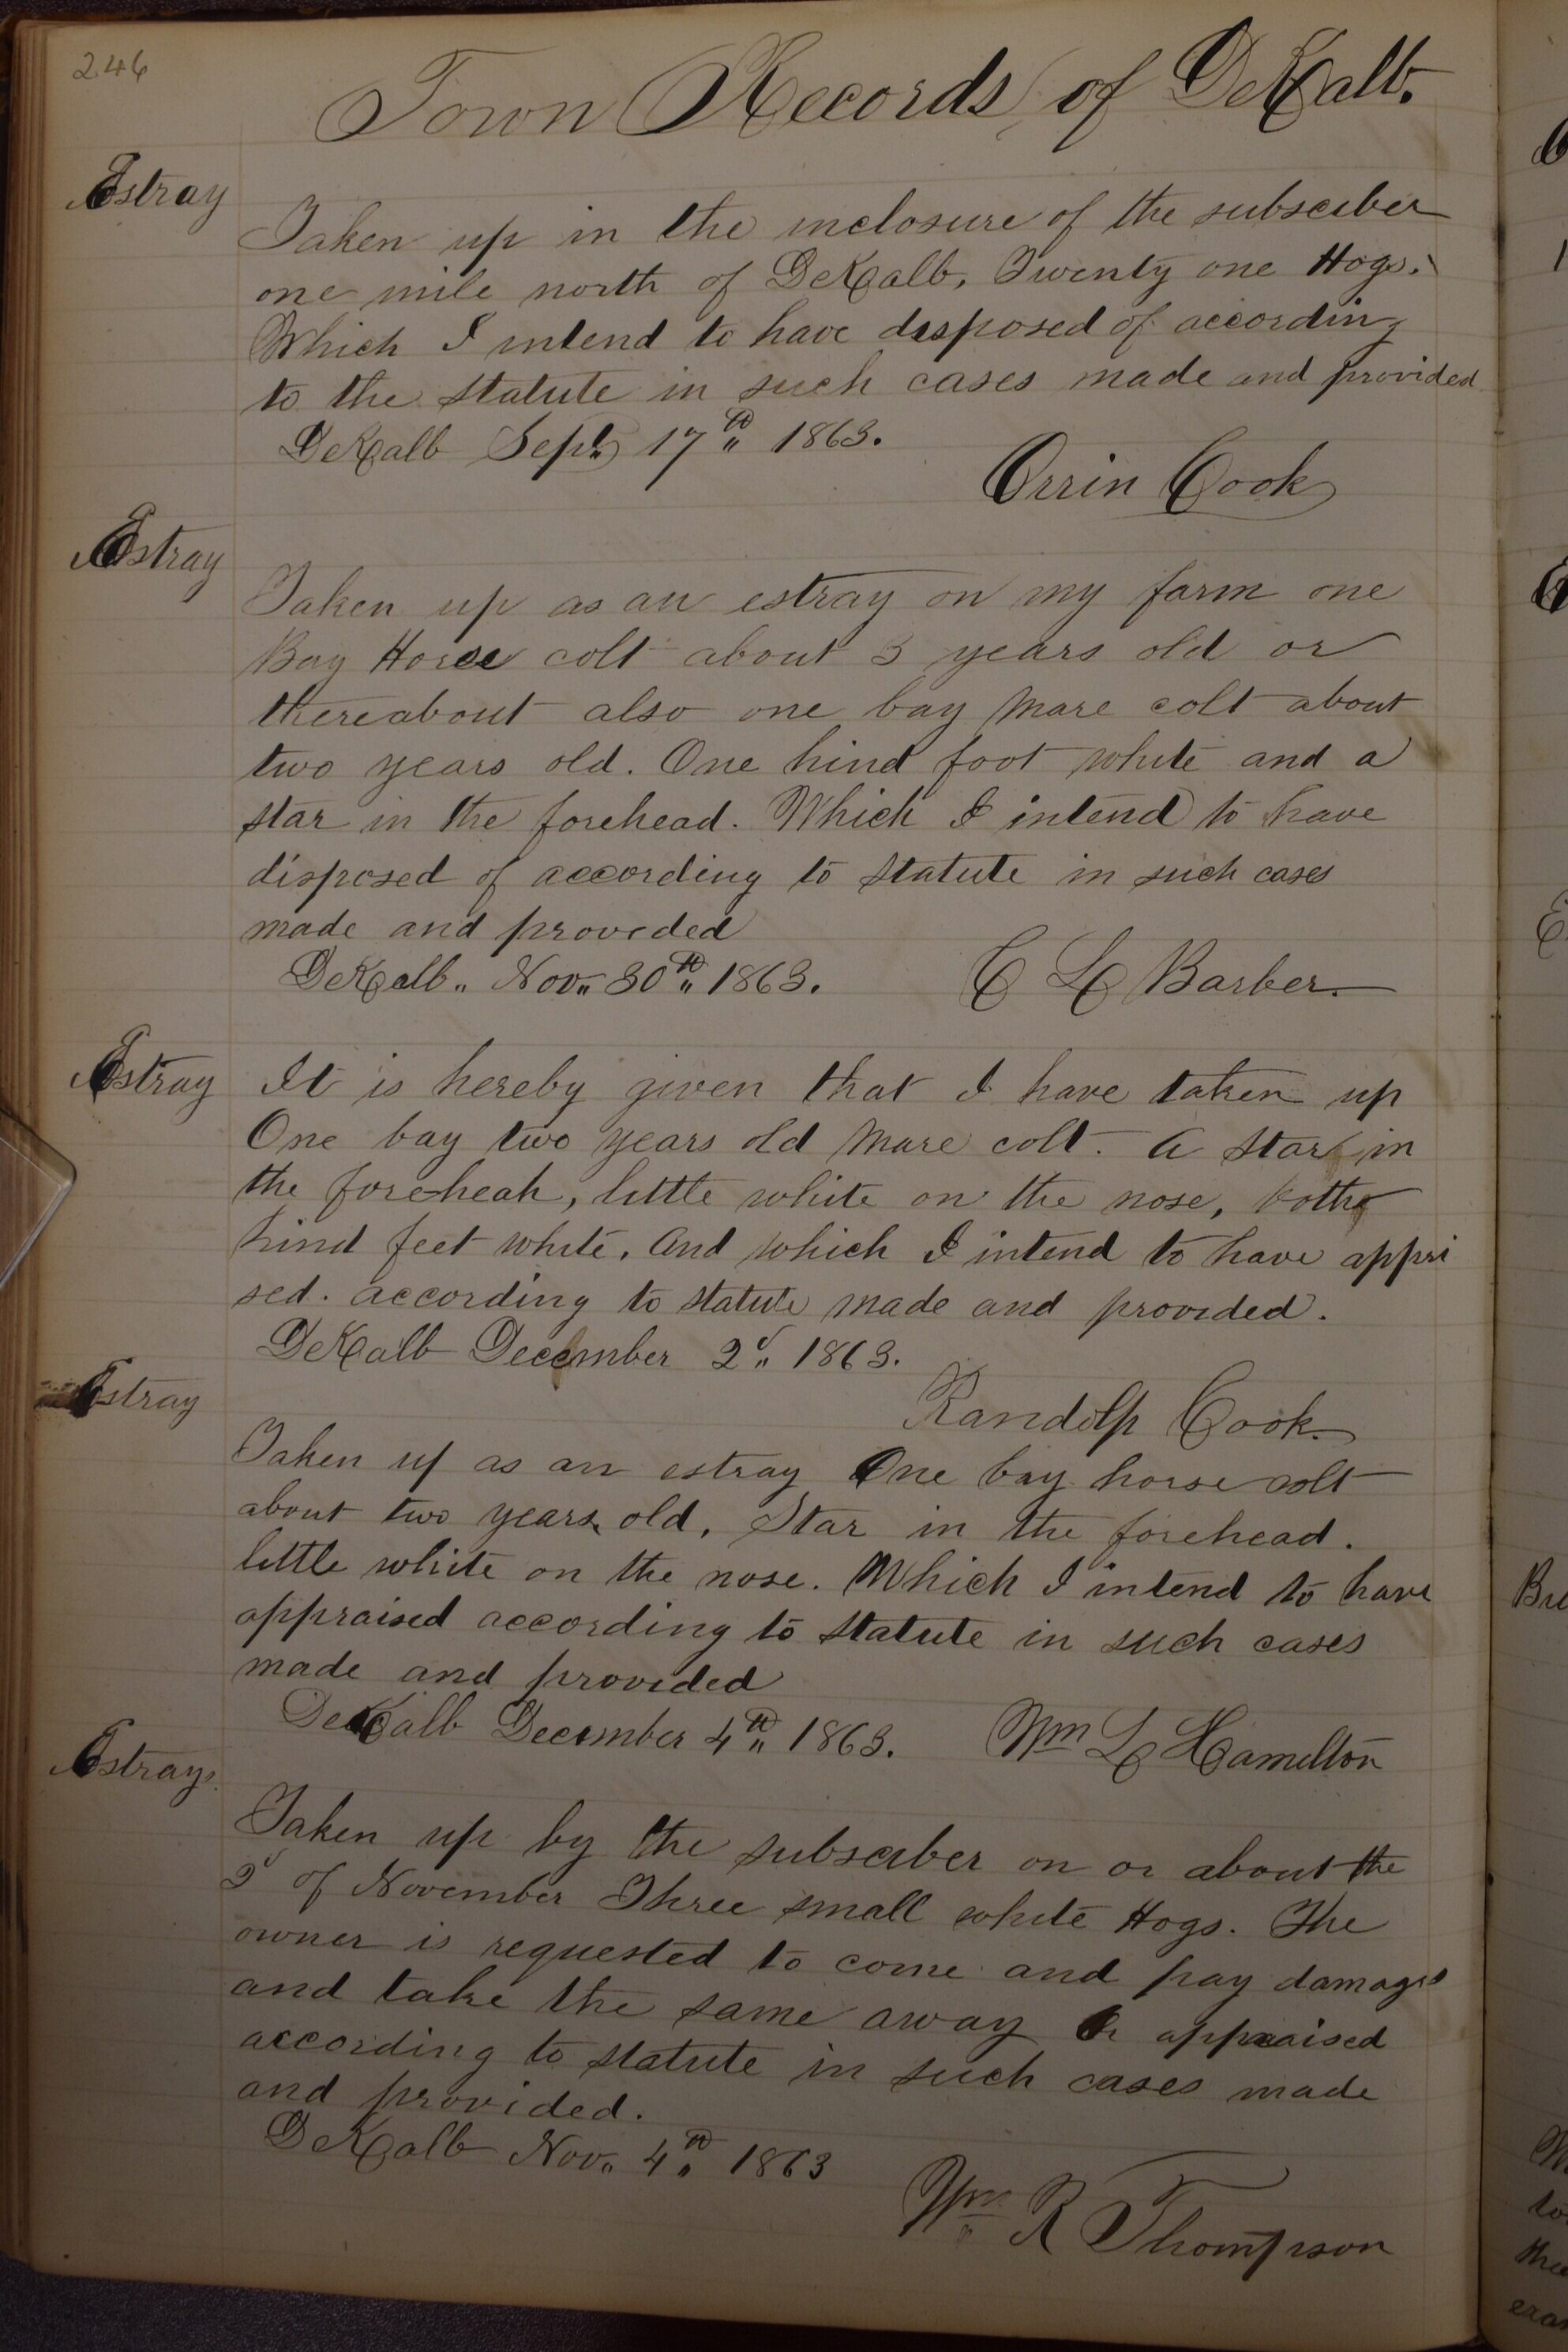 246
Town Records of DeKalb.
Estray
Taken up in the inclosure of the subsciber
one mile north of DeKalb, Twenty one Hogs.
Which I intend to have disposed of according
to the statute in such cases made and provided
DeKalb Sept. 17th 1863.
Orrin Cook
Estray
Taken up as an estray on my farm one
Bay Horse colt about 3 years old or
thereabout also one bay mare colt about
two years old. One hind foot white and a
star in the forehead. Which I intend to have
disposed of according to statute in such cases
made and provided
DeKalb„ Nov„ 30th„ 1863.
C L Barber
Estray
It is hereby given that I have taken up
One bay two years old Mare colt. A star in
the foreheah, little white on the nose, both
hind feet white. And which I intend to have apprai
sed. according to statute made and provided.
DeKalb December 2d„ 1863.
Randolp Cook
Estray
Taken up as an estray One bay horse colt
about two years old, Star in the forehead.
little white on the nose. Which I intend to have
appraised according to statute in such cases
made and provided
DeKalb December 4th„ 1863.
Wm L Hamilton
Estrays.
Taken up by the subsciber on or about the
2d of November Three small white Hogs. The
owner is requested to come and pay damages
and take the same away Or appraised
according to statute in such cases made
and provided.
DeKalb Nov„ 4th„ 1863
Wm R Thompson